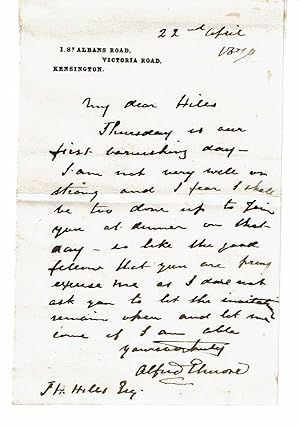 22nd April
1879
1. ST ALBANS ROAD,
VICTORIA ROAD,
KENSINGTON.
My dear Hills
Thursday is our
first varnishing day —
I am not very well or
strong and I fear I shall
be too done up to join
you at dinner on that
day — so like the good
fellow that you are pray
excuse me as I dare not
ask you to let the invitation
remain open and let me
come if I am able
yours
Alfred Elmore
Hills Esq.